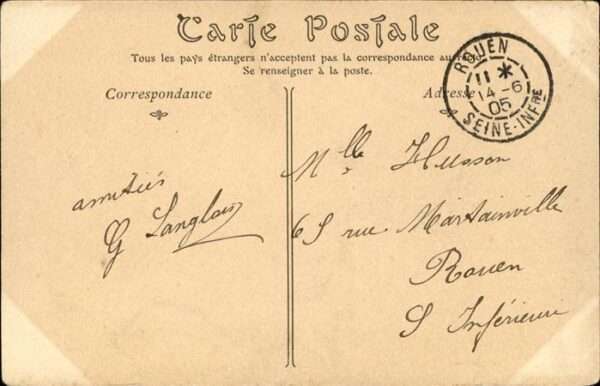 Carte Postale
Tous les pays étrangers n'acceptent pas la correspondance au
Se renseigner à la poste.
Correspondance
Adresse
ROUEN
11 *
14-6
05
SEINE-INFRE
amitiés
G Langlois
Mlle Husson
65 rue Martainville
Rouen
S Inférieure